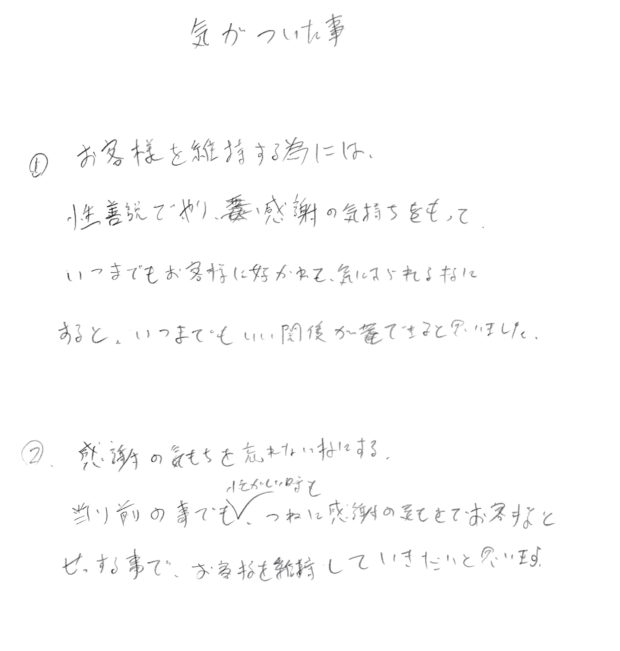 気がついた事
① お客様を維持する為には、
性善説でやり、感謝の気持ちをもって
いつまでもお客様に好かれて、気にいられる様に
すると、いつまでもいい関係が できると思いました。
②. 感謝の気もちを忘れない様にする。
忙がしい時も
当り前の事でも、つねに感謝の気もちでお客すまと
せっする事で、お客様を維持していきたいと思います。